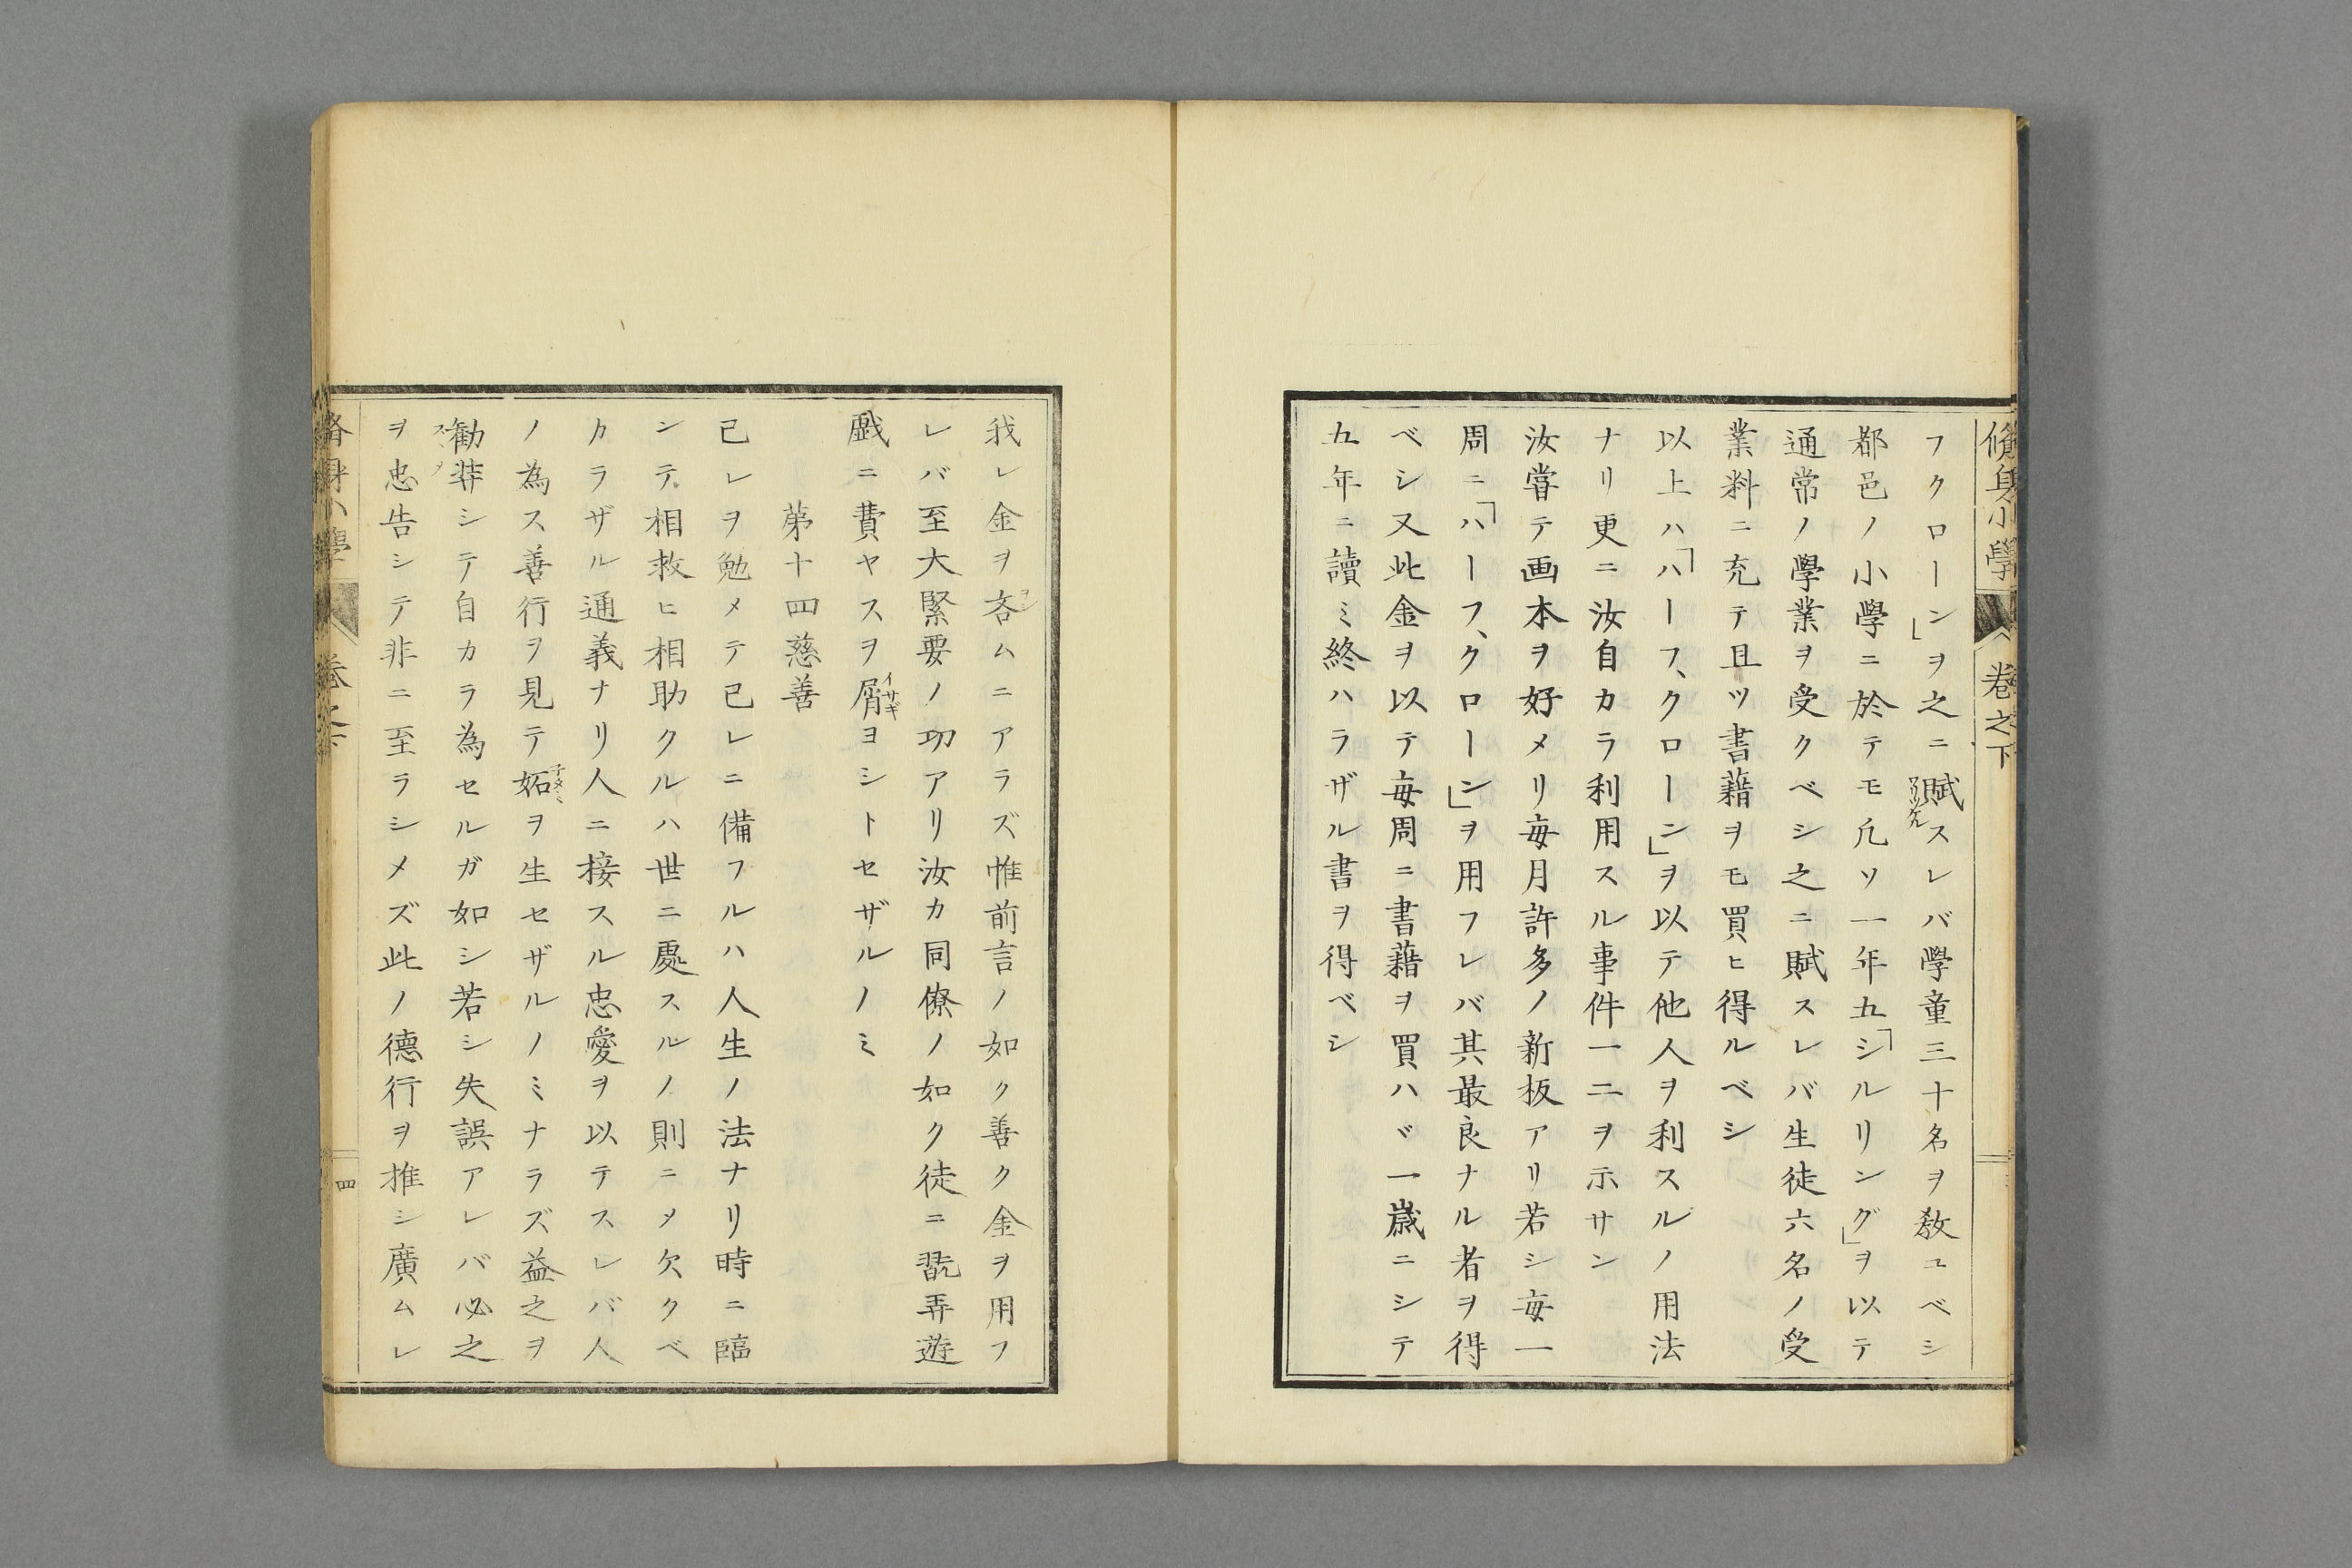 脩身小學 卷之下
フクローン」ヲ之ニ賦スレバ學童三十名ヲ敎ユベシ
都邑ノ小學ニ於テモ凢ソ一年五「シルリング」ヲ以テ
通常ノ學業ヲ受クベシ之ニ賦スレバ生徒六名ノ受
業料ニ充テ且ツ書藉ヲモ買ヒ得ルベシ
以上ハ「ハーフ、クローン」ヲ以テ他人ヲ利スルノ用法
ナリ更ニ汝自カラ利用スル事件一二ヲ示サン
汝甞テ画本ヲ好メリ毎月許多ノ新板アリ若シ毎一
周ニ「ハーフ、クローン」ヲ用フレバ其最良ナル者ヲ得
ベシ又此金ヲ以テ毎周ニ書藉ヲ買ハヾ一歳ニシテ
五年ニ讀ミ終ハラザル書ヲ得ベシ
我レ金ヲ吝ムニアラズ惟前言ノ如ク善ク金ヲ用フ
レバ至大緊要ノ功アリ汝カ同僚ノ如ク徒ニ翫弄遊
戯ニ費ヤスヲ屑ヨシトセザルノミ
イサギ
第十四慈善
己レヲ勉メテ己レニ備フルハ人生ノ法ナリ時ニ臨
ンテ相救ヒ相助クルハ世ニ處スルノ則ニメ欠クベ
カラザル通義ナリ人ニ接スル忠愛ヲ以テスレバ人
ノ為ス善行ヲ見テ妬ヲ生セザルノミナラズ益之ヲ
子タミ
勸奬シテ自カラ為セルガ如シ若シ失誤アレバ必之
ヲ忠告シテ非ニ至ラシメズ此ノ德行ヲ推シ廣ムレ
脩身小學 卷之下 四